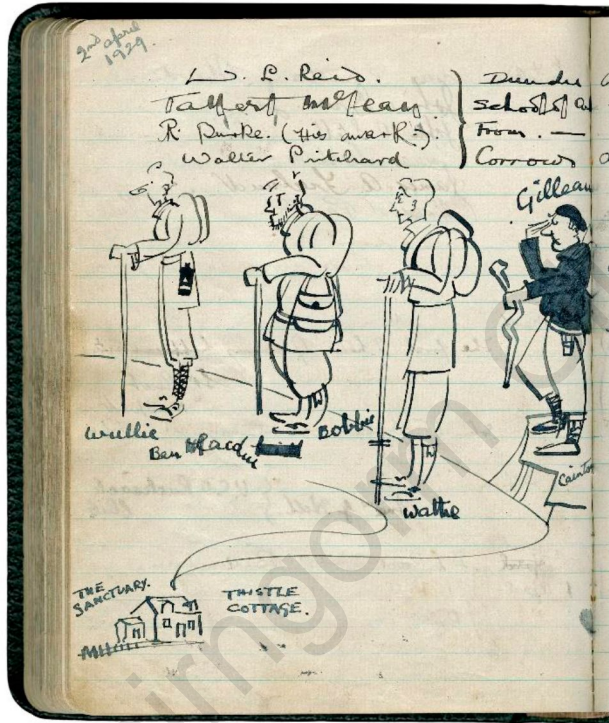 2nd April
1929
W. L. Reid.
Talbert McLean
R. Burke. (His mark).
Walter Pritchard
Dundee
School of
From. —
Corrour
Gillean
Wullie
Ben Macdui
Bobbie
Wattie
Cairntoul
THE
SANCTUARY.
THISTLE
COTTAGE.